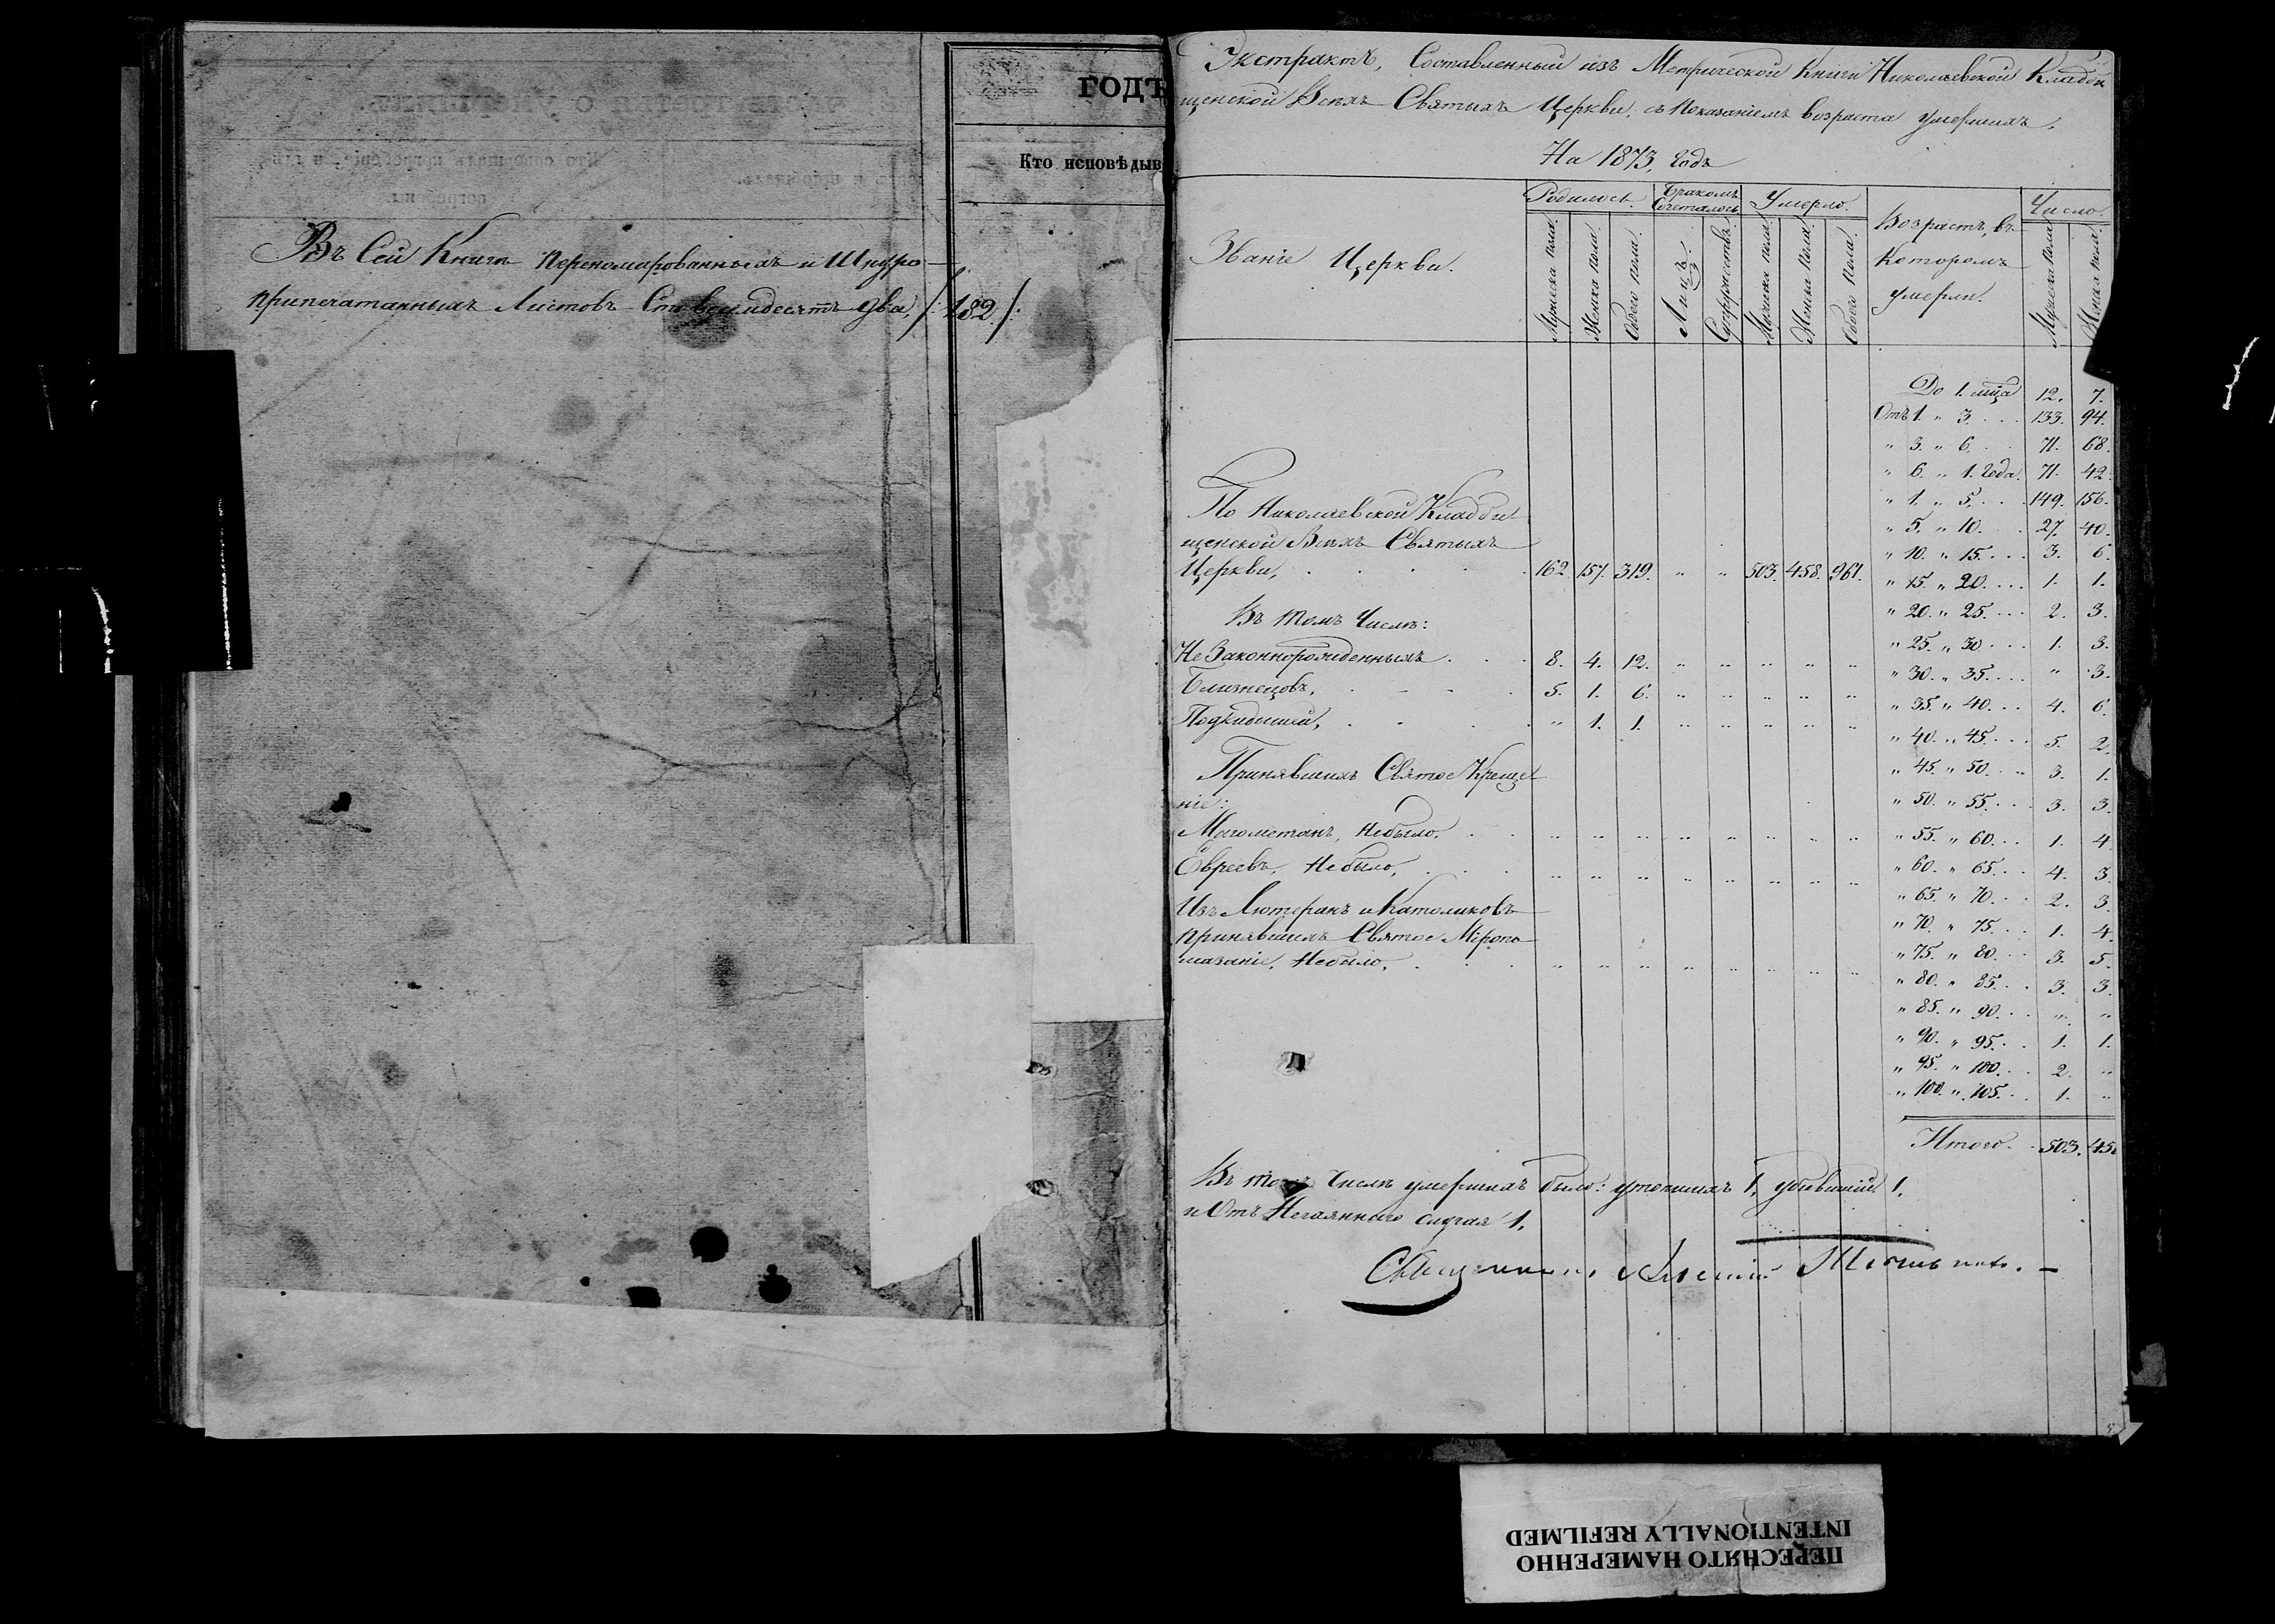 ГОДЪ
Кто исповѣдыв
Въ Сей Книгѣ Перенумерованныхъ и Шнуро
припечатанныхъ Листовъ Сто восимдесятъ два, /:182:/
Экстрактъ, Составленный изъ Метрической Книги Николаевской Кладби
щенской Всѣхъ Святыхъ Церкви, съ показаніемъ возраста умершихъ,
На 1873, годъ
Званіе Церкви.
Родилось. Бракомъ Сочеталось Умерло. Возрастъ, въ Которомъ умерли. Число.
Мужска пола. Женска пола. Обоего пола. Лицъ. Супружествъ. Мужска пола. Женска пола. Обоего пола. Мужска пола. Женска пола.
До 1. мца 12. 7.
Отъ 1. " 3. 133. 94.
" 3. " 6. 71. 68.
" 6. " 1. Года. 71. 42.
" 1. " 5. 149. 156.
" 5. " 10. 27. 40.
" 10. " 15. 3. 6.
" 15. " 20. 1. 1.
" 20. " 25. 2. 3.
" 25. " 30 1. 3.
" 30. " 35. " 3.
" 35. " 40. 4. 6.
" 40. " 45. 5. 2.
" 45. " 50. 3. 1.
" 50. " 55. 3. 3.
" 55. " 60. 1. 4.
" 60. " 65. 4. 3.
" 65. " 70. 2. 3.
" 70. " 75. 1. 4.
" 75. " 80. 3. 5.
" 80. " 85. 3. 3.
" 85. " 90. " "
" 90. " 95. 1. 1.
" 95. " 100. 2. "
" 100. " 105. 1. "
Итого. 503. 45
По Николаевской Кладби
щенской Всѣхъ Святыхъ
Церкви, 162. 157. 319. " " 503. 458. 961.
Въ томъ Числѣ:
Не Законнорожденныхъ 8. 4. 12. " " " " "
Близнецовъ, 5. 1. 6. " " " " "
Подкидышей, " 1. 1. " " " " "
Принявшихъ Святое Креще
ніе:
Магометанъ, Небыло. " " " " " " " "
Евреевъ, Небыло, " " " " " " " "
Изъ Лютеранъ и Католиковъ
принявшихъ Святое Мѵропо
мазаніе, Небыло, " " " " " " " "
Въ томъ Числѣ умершихъ было: утопшихъ 1, убившій 1,
и Отъ Нечаяннаго случая 1,
Священникъ Алексій
ПЕРЕСНЯТО НАМЕРЕННО
INTENTIONALLY REFILMED